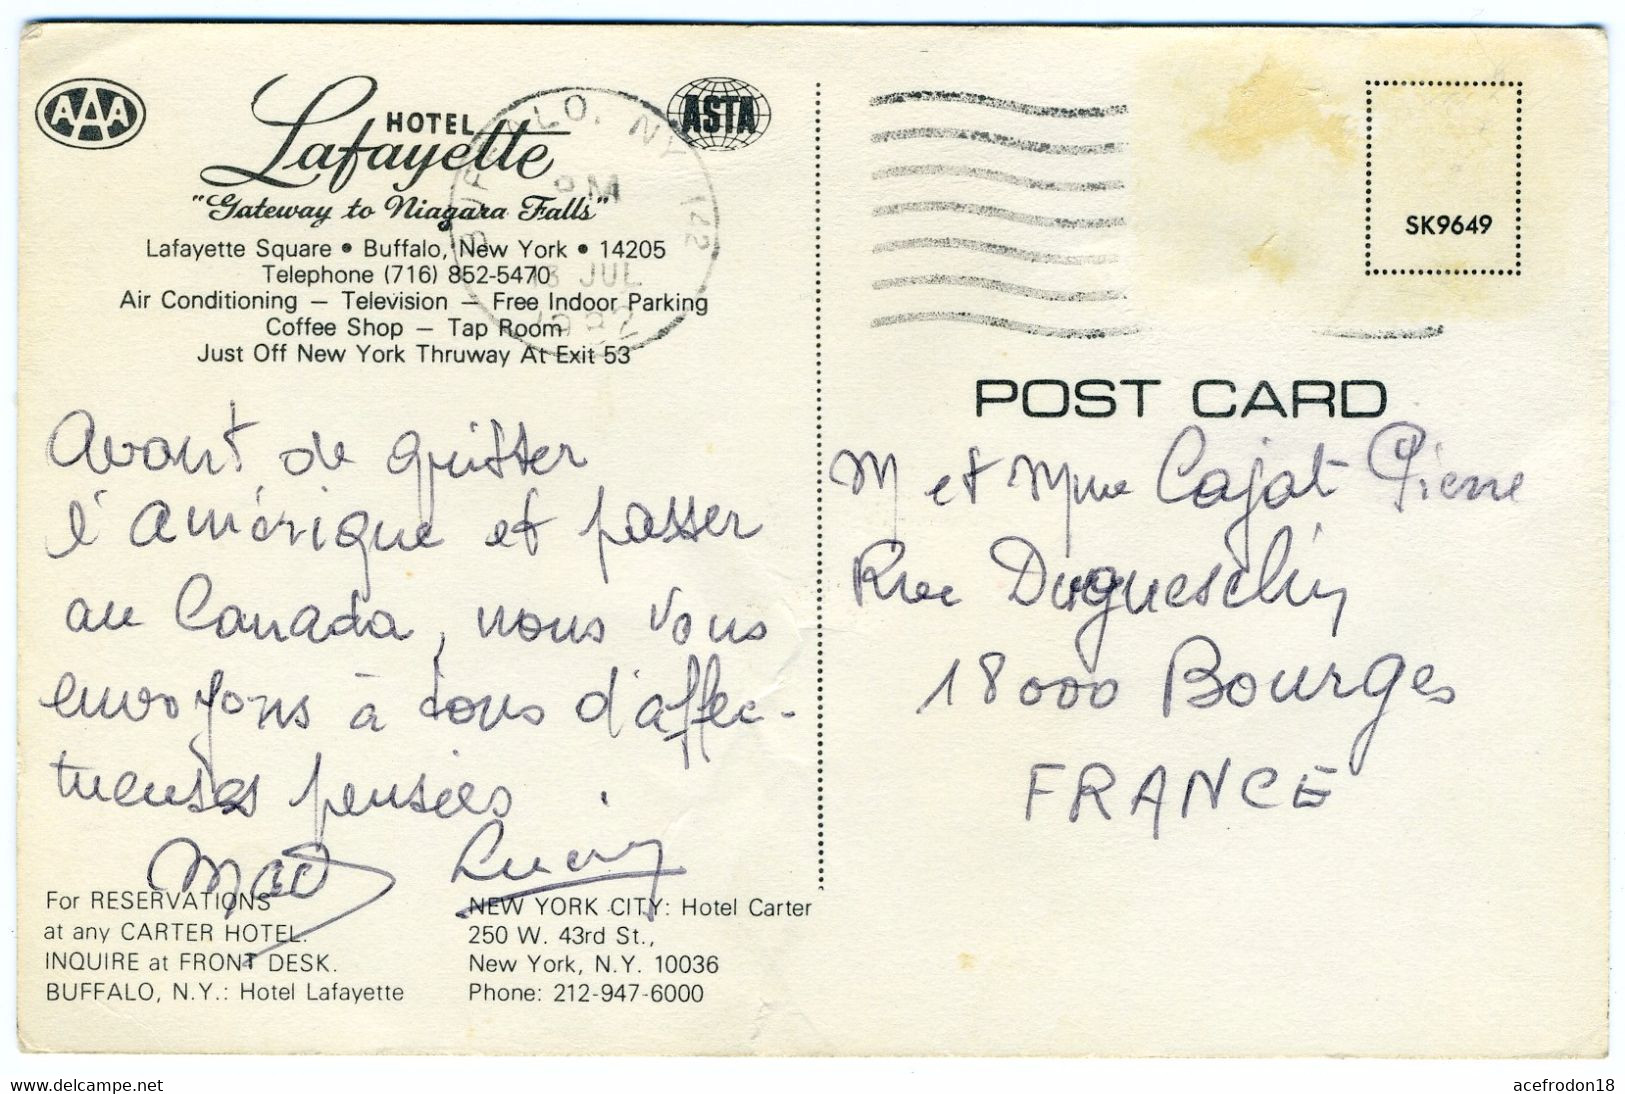 AAA
HOTEL
Lafayette
ASTA
"Gateway to Niagara Falls"
Lafayette Square • Buffalo, New York • 14205
Telephone (716) 852-5470
Air Conditioning — Television — Free Indoor Parking
Coffee Shop — Tap Room
Just Off New York Thruway At Exit 53
BUFFALO, NY 142
PM
JUL
SK9649
POST CARD
Avant de quitter
l'Amérique et passer
au Canada, nous vous
envoyons à tous d'affec-
tueuses pensées.
M et Mme Cajat Pierre
Rue Dugueschin
18000 Bourges
FRANCE
For RESERVATIONS
at any CARTER HOTEL.
INQUIRE at FRONT DESK.
BUFFALO, N.Y.: Hotel Lafayette
NEW YORK CITY: Hotel Carter
250 W. 43rd St.,
New York, N.Y. 10036
Phone: 212-947-6000
delcampe.net
acefrodon18